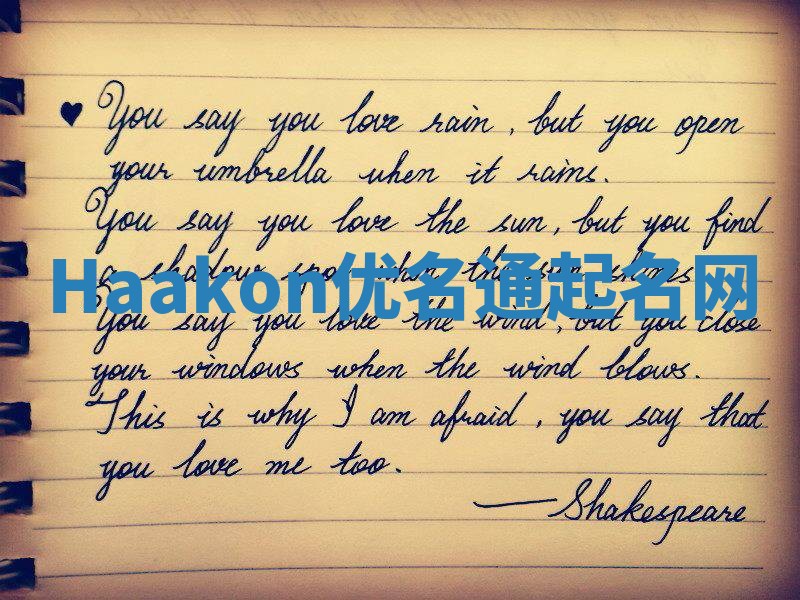 ♥ You say you love rain, but you open
your umbrella when it rains.
You say you love the sun, but you find
a shadow spot when the sun shines
Haakon优名通起名网
You say you love the wind, but you close
your windows when the wind blows.
This is why I am afraid, you say that
you love me too.
—Shakespeare